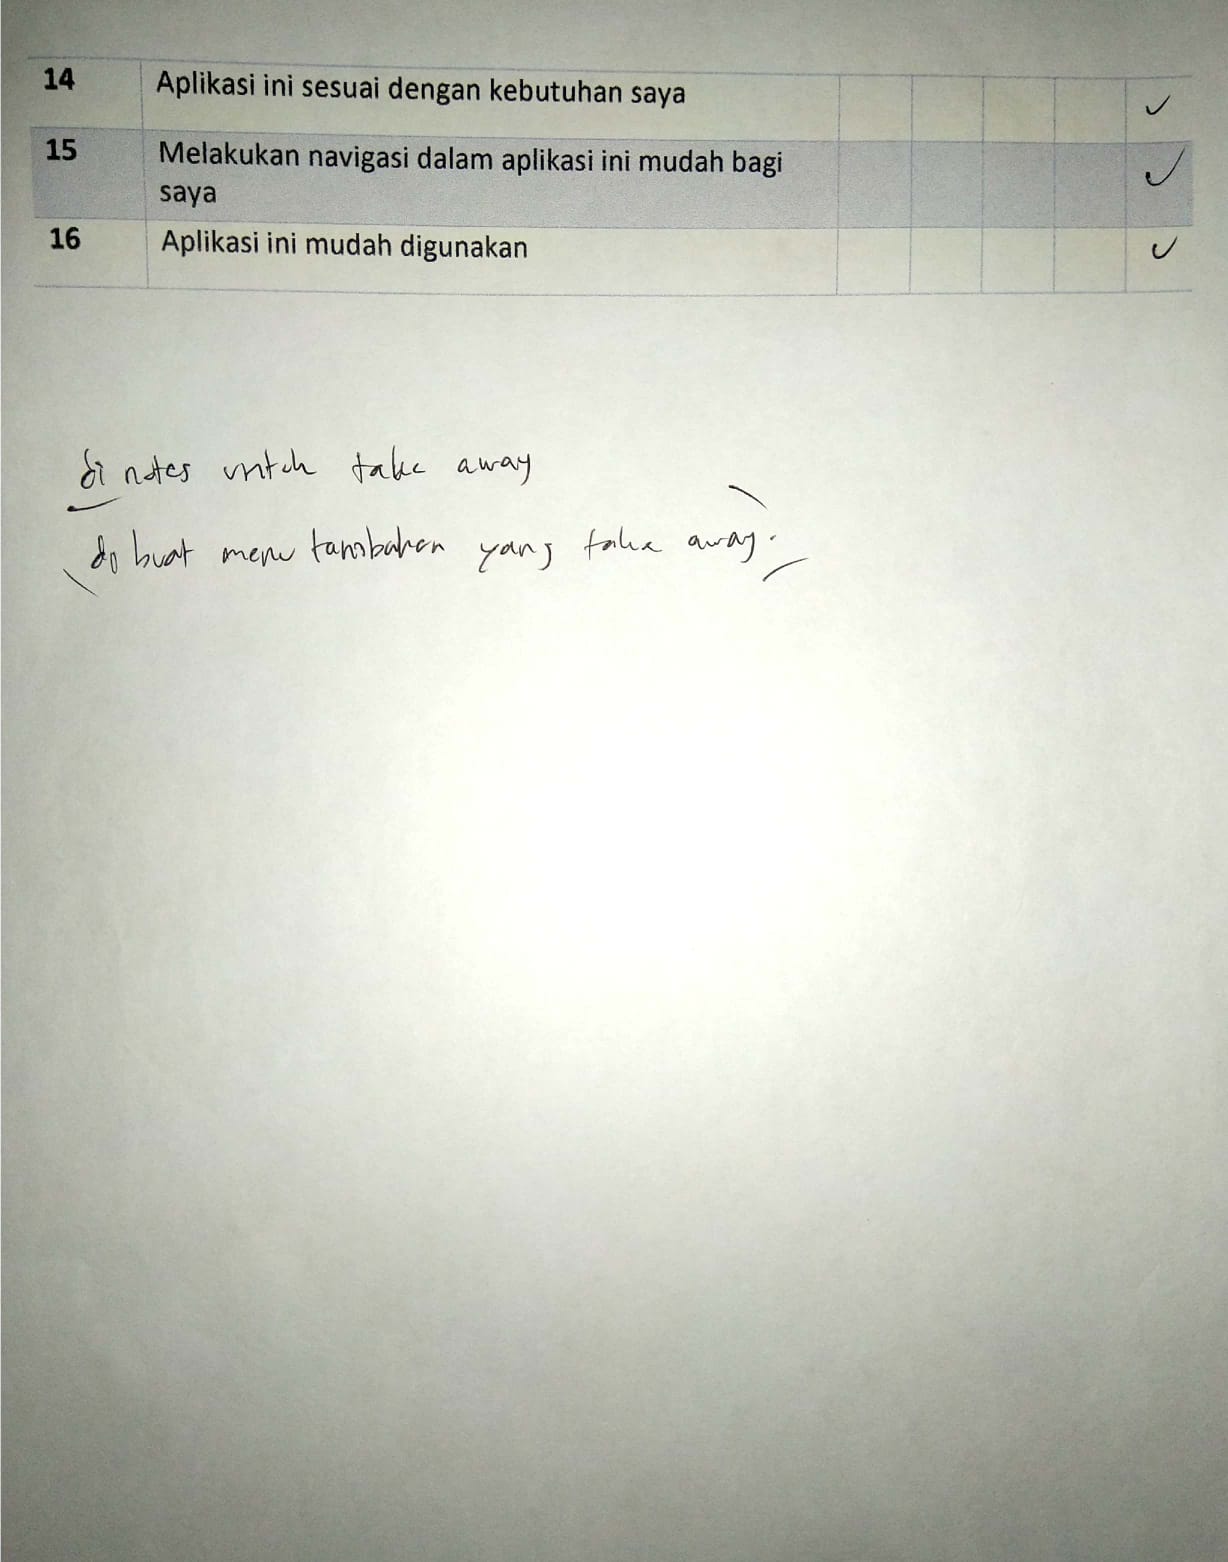 14 Aplikasi ini sesuai dengan kebutuhan saya ✓
15 Melakukan navigasi dalam aplikasi ini mudah bagi
saya ✓
16 Aplikasi ini mudah digunakan ✓
di notes untuk take away
di buat menu tambahan yang take away.